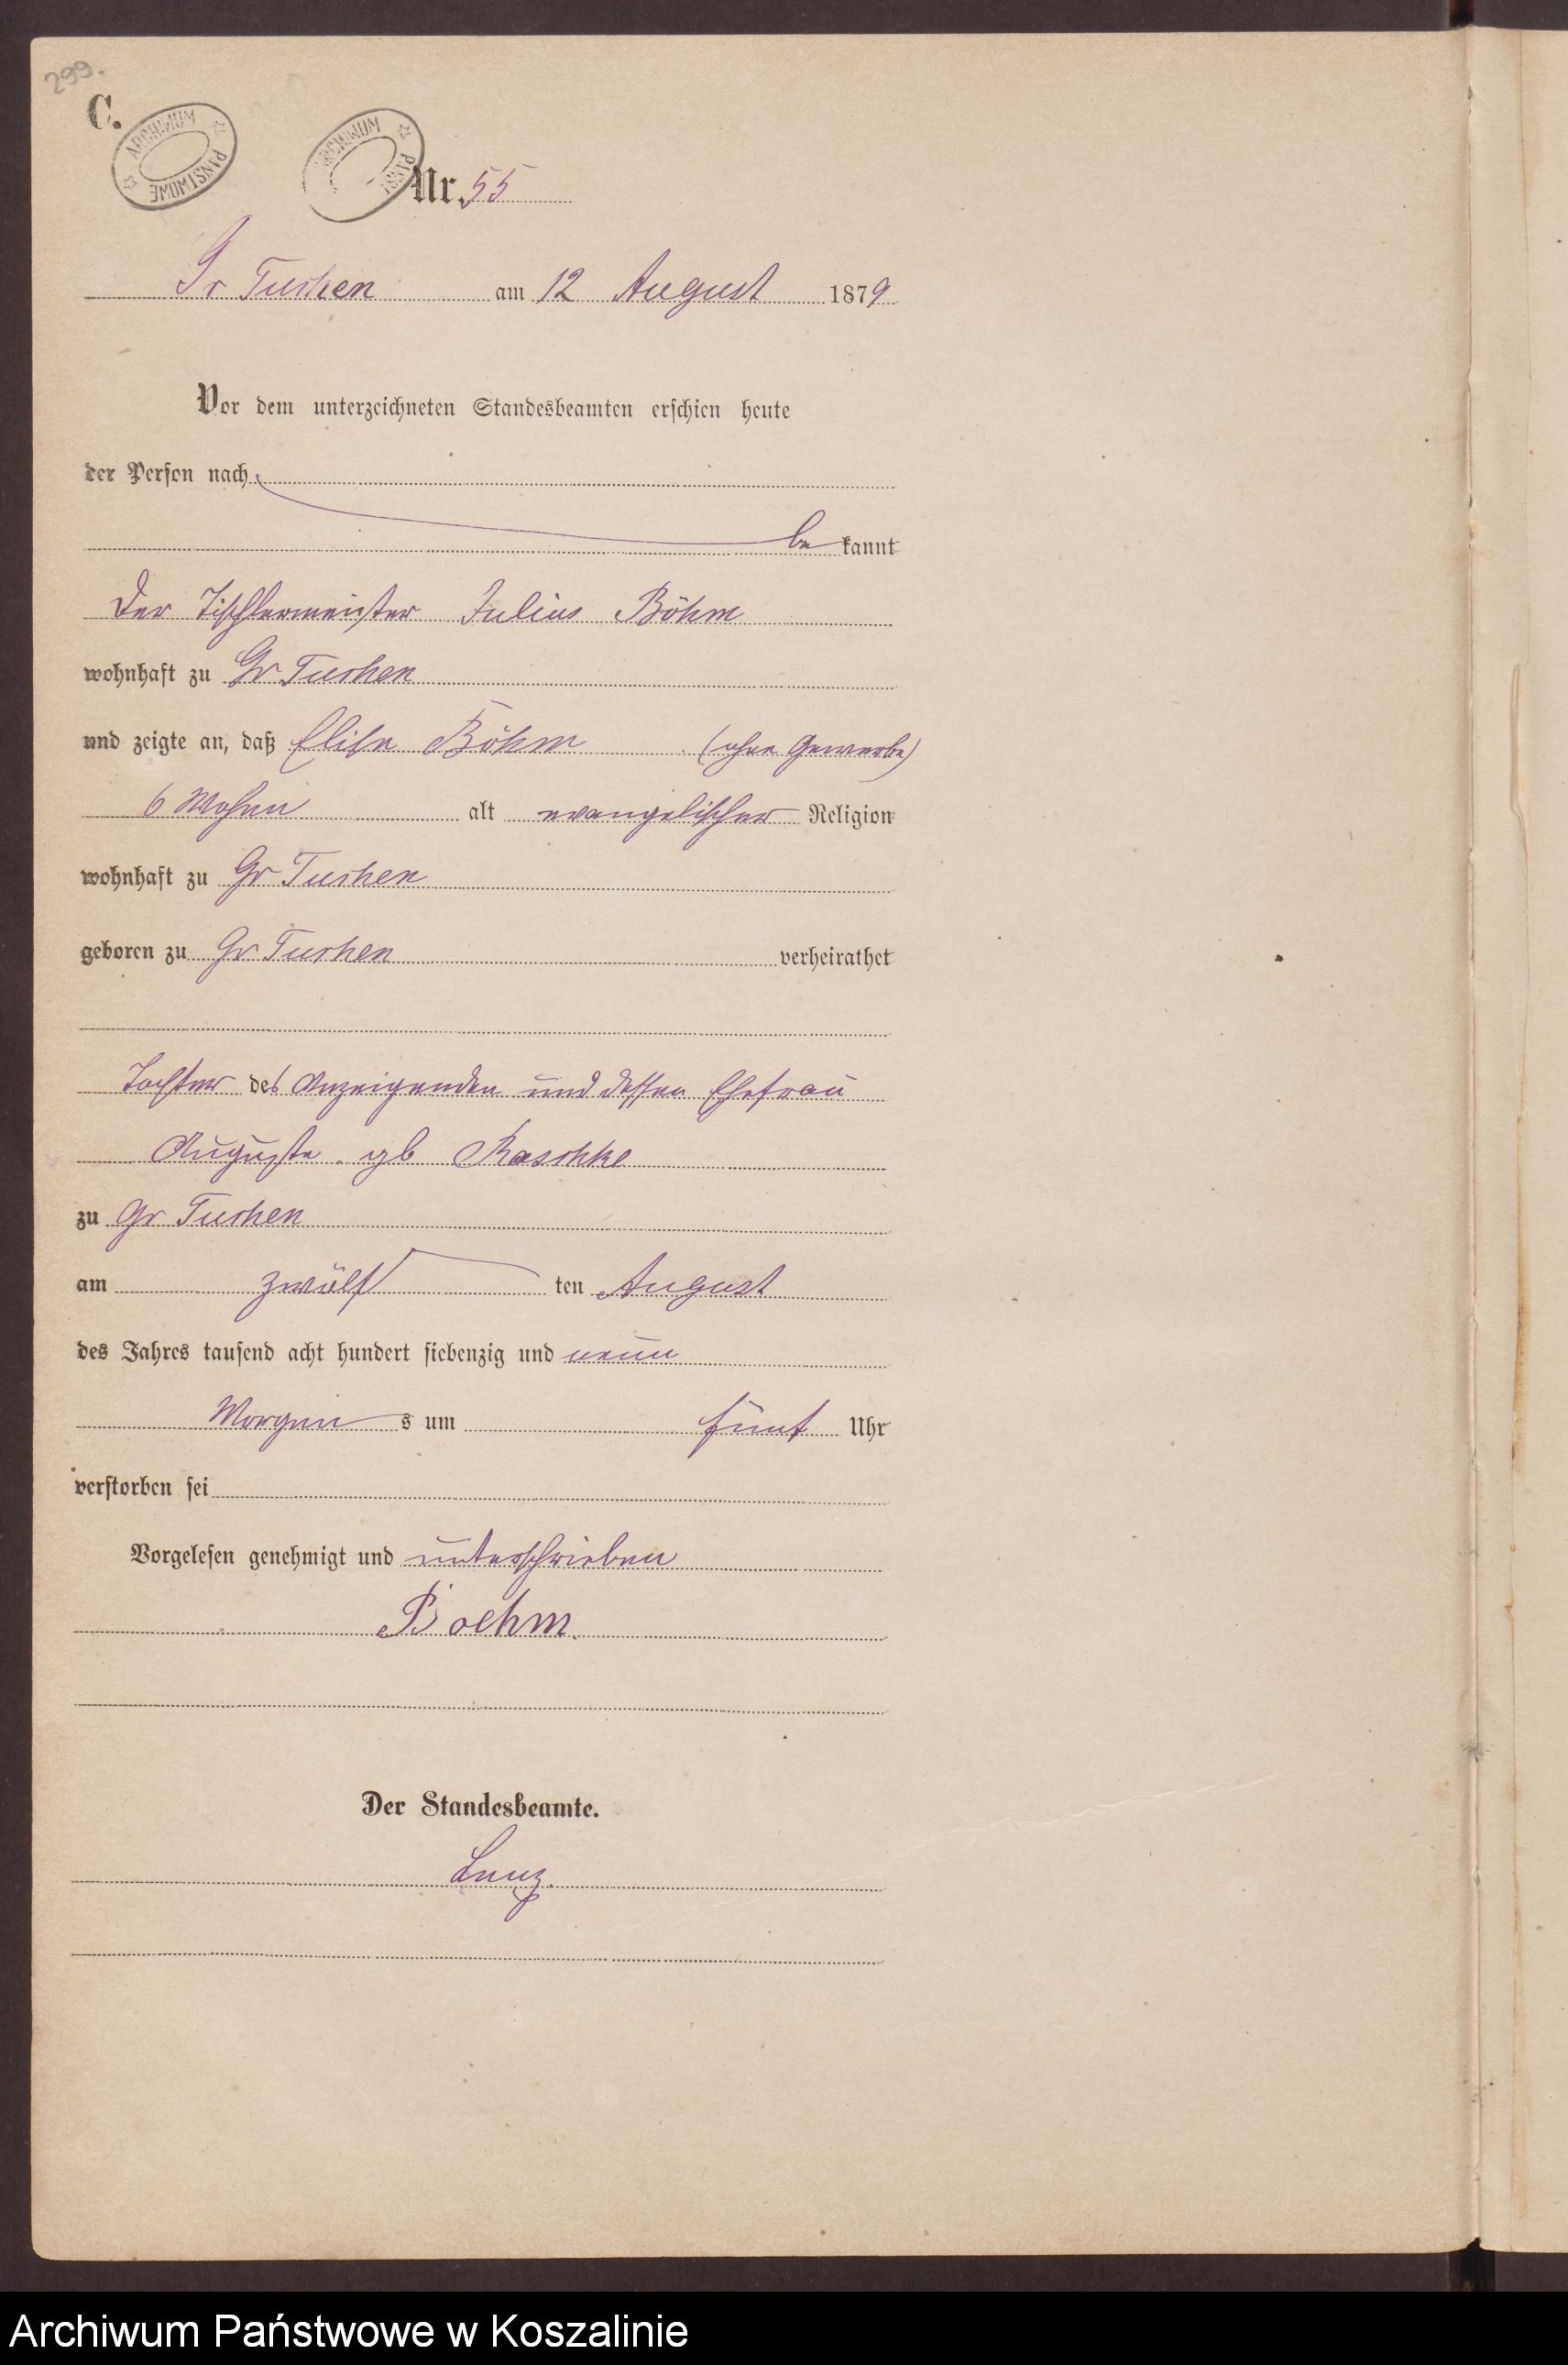 299.
C.
ARCHIWUM PAŃSTWOWE
ARCHIWUM PAŃST
Nr. 55
Gr Tuchen am 12 August 1879
Vor dem unterzeichneten Standesbeamten erschien heute
der Person nach
be kannt
der Tischlermeister Julius Böhm
wohnhaft zu Gr Tuchen
und zeigte an, daß Elise Böhm (ohne Gewerbe)
6 Wochen alt evangelischer Religion
wohnhaft zu Gr Tuchen
geboren zu Gr Tuchen verheirathet
Tochter des Anzeigenden und dessen Ehefrau
Auguste geb Raschke
zu Gr Tuchen
am zwölf ten August
des Jahres tausend acht hundert siebenzig und neun
Morgen s um fünf Uhr
verstorben sei
Vorgelesen genehmigt und unterschrieben
Boehm.
Der Standesbeamte.
Archiwum Państwowe w Koszalinie